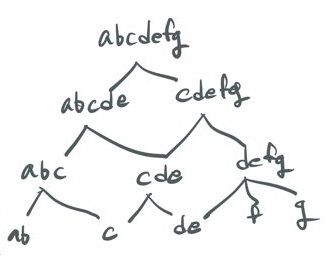 abcdefg
abcde cdefg
abc cde defg
ab c de f g